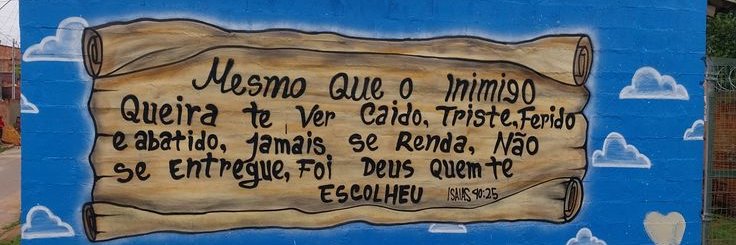 Mesmo Que o Inimigo
Queira te Ver Caido, Triste, Ferido
e abatido, jamais se Renda, Não
se Entregue, Foi Deus Quem te
ESCOLHEU ISAIAS 40:25